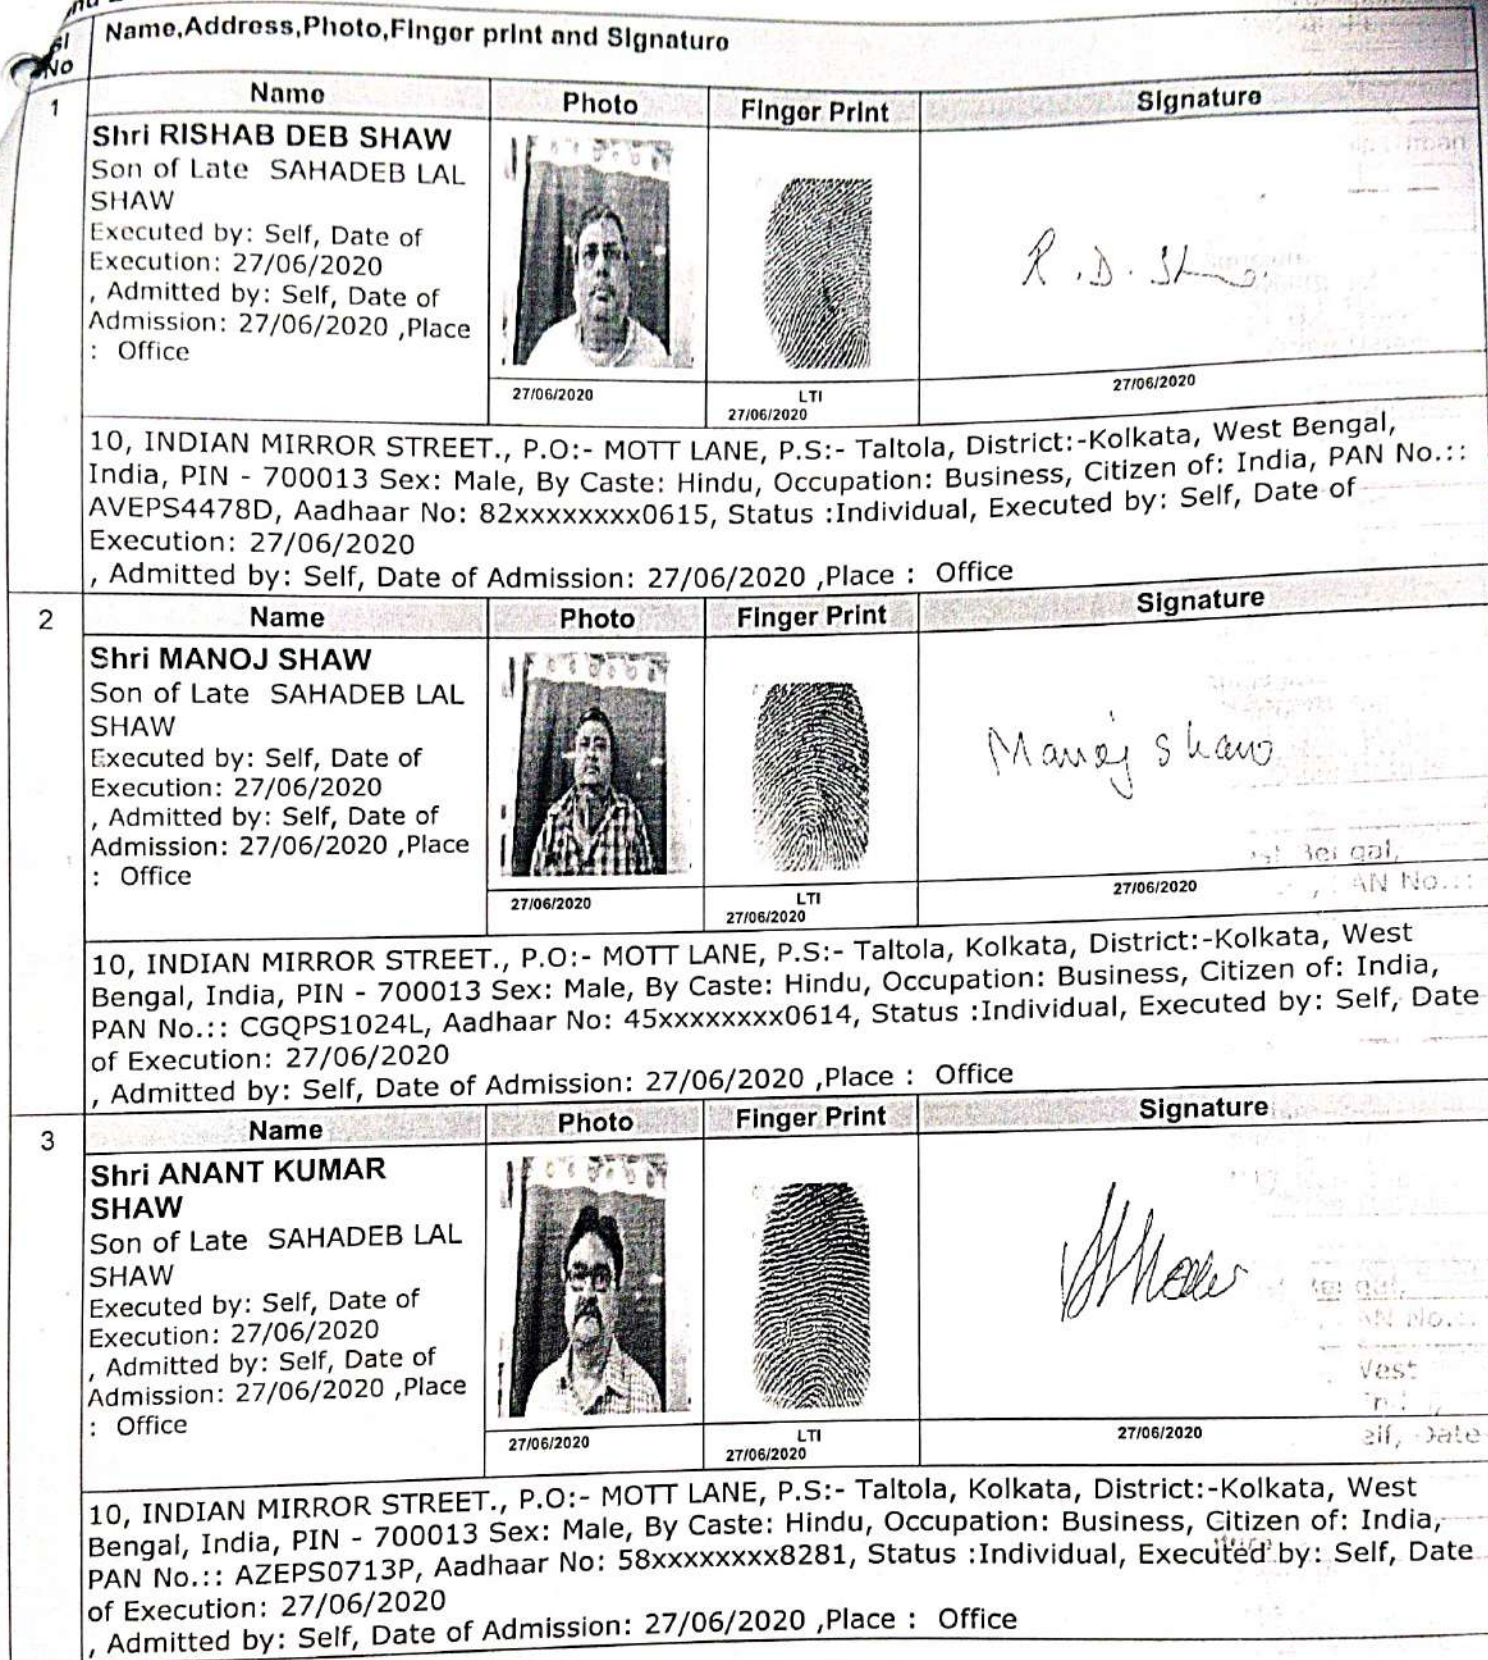 Sl
No
Name,Address,Photo,Finger print and Signature
1
Name
Photo
Finger Print
Signature
Shri RISHAB DEB SHAW
Son of Late SAHADEB LAL
SHAW
Executed by: Self, Date of
Execution: 27/06/2020
, Admitted by: Self, Date of
Admission: 27/06/2020 ,Place
: Office
R.D. Sh
27/06/2020
LTI
27/06/2020
27/06/2020
10, INDIAN MIRROR STREET., P.O:- MOTT LANE, P.S:- Taltola, District:-Kolkata, West Bengal,
India, PIN - 700013 Sex: Male, By Caste: Hindu, Occupation: Business, Citizen of: India, PAN No.::
AVEPS4478D, Aadhaar No: 82xxxxxxxx0615, Status :Individual, Executed by: Self, Date of
Execution: 27/06/2020
, Admitted by: Self, Date of Admission: 27/06/2020 ,Place : Office
2
Name
Photo
Finger Print
Signature
Shri MANOJ SHAW
Son of Late SAHADEB LAL
SHAW
Executed by: Self, Date of
Execution: 27/06/2020
, Admitted by: Self, Date of
Admission: 27/06/2020 ,Place
: Office
Manoj Shaw
27/06/2020
LTI
27/06/2020
27/06/2020
10, INDIAN MIRROR STREET., P.O:- MOTT LANE, P.S:- Taltola, Kolkata, District:-Kolkata, West
Bengal, India, PIN - 700013 Sex: Male, By Caste: Hindu, Occupation: Business, Citizen of: India,
PAN No.:: CGQPS1024L, Aadhaar No: 45xxxxxxxx0614, Status :Individual, Executed by: Self, Date
of Execution: 27/06/2020
, Admitted by: Self, Date of Admission: 27/06/2020 ,Place : Office
3
Name
Photo
Finger Print
Signature
Shri ANANT KUMAR
SHAW
Son of Late SAHADEB LAL
SHAW
Executed by: Self, Date of
Execution: 27/06/2020
, Admitted by: Self, Date of
Admission: 27/06/2020 ,Place
: Office
27/06/2020
LTI
27/06/2020
27/06/2020
10, INDIAN MIRROR STREET., P.O:- MOTT LANE, P.S:- Taltola, Kolkata, District:-Kolkata, West
Bengal, India, PIN - 700013 Sex: Male, By Caste: Hindu, Occupation: Business, Citizen of: India,
PAN No.:: AZEPS0713P, Aadhaar No: 58xxxxxxxx8281, Status :Individual, Executed by: Self, Date
of Execution: 27/06/2020
, Admitted by: Self, Date of Admission: 27/06/2020 ,Place : Office